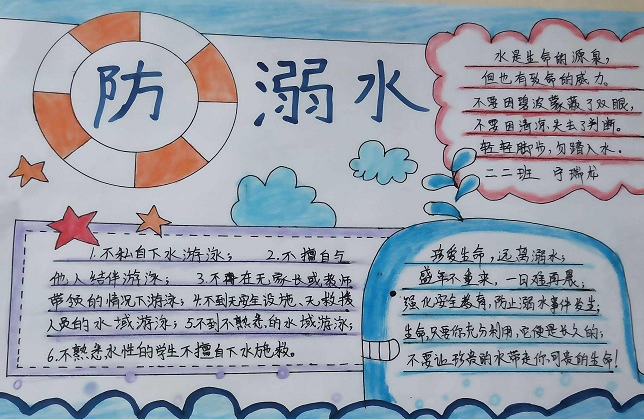 防溺水
水是生命的源泉,
但也有致命的威力。
不要因碧波蒙蔽了双眼;
不要因清凉失去了判断。
轻轻脚步,勿踏入水。
二二班 宁瑞龙
1.不私自下水游泳; 2.不擅自与
他人结伴游泳; 3.不再在无家长或老师
带领的情况下游泳;4.不到无安全设施、无救援
人员的水域游泳;5.不到不熟悉的水域游泳;
6.不熟悉水性的学生不擅自下水施救。
珍爱生命,远离溺水;
盛年不重来,一日难再晨;
强化安全教育,防止溺水事件发生;
生命,只要你充分利用,它便是长久的;
不要让珍贵的水带走你可贵的生命!